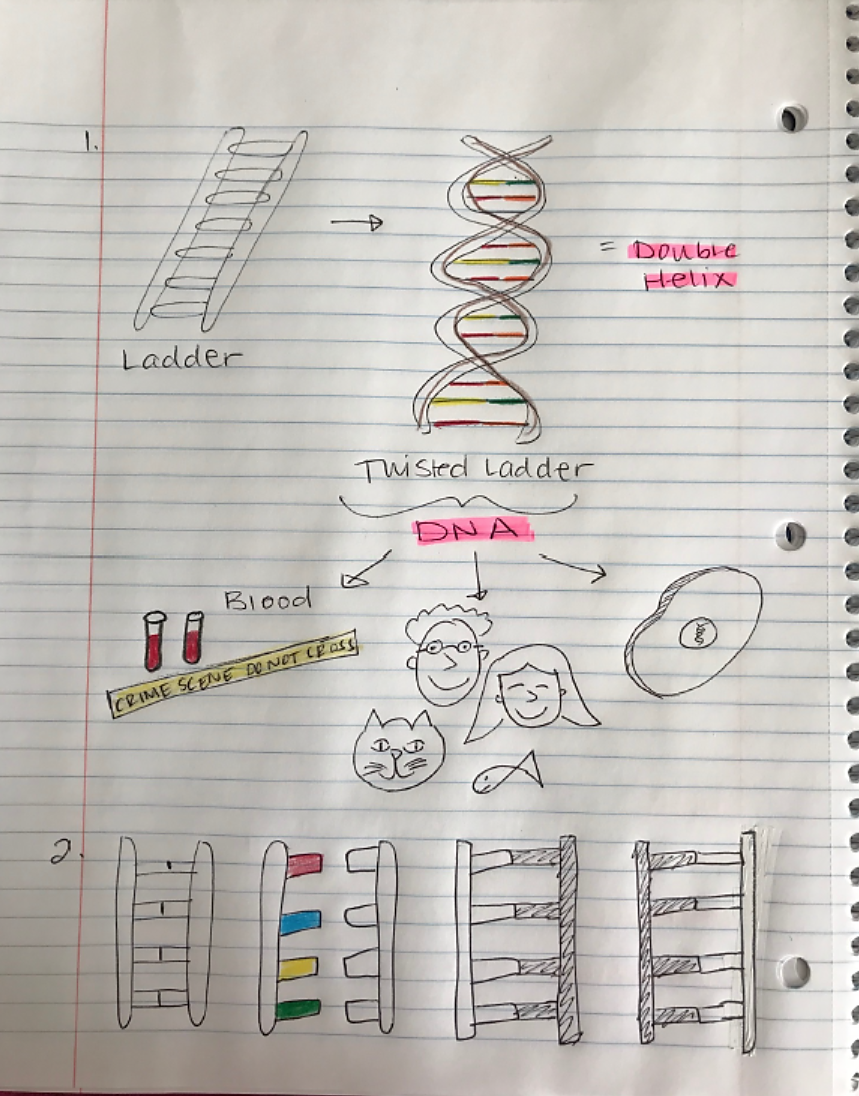 1.
= Double
Helix
Ladder
Twisted Ladder
DNA
Blood
CRIME SCENE DO NOT CROSS
2.